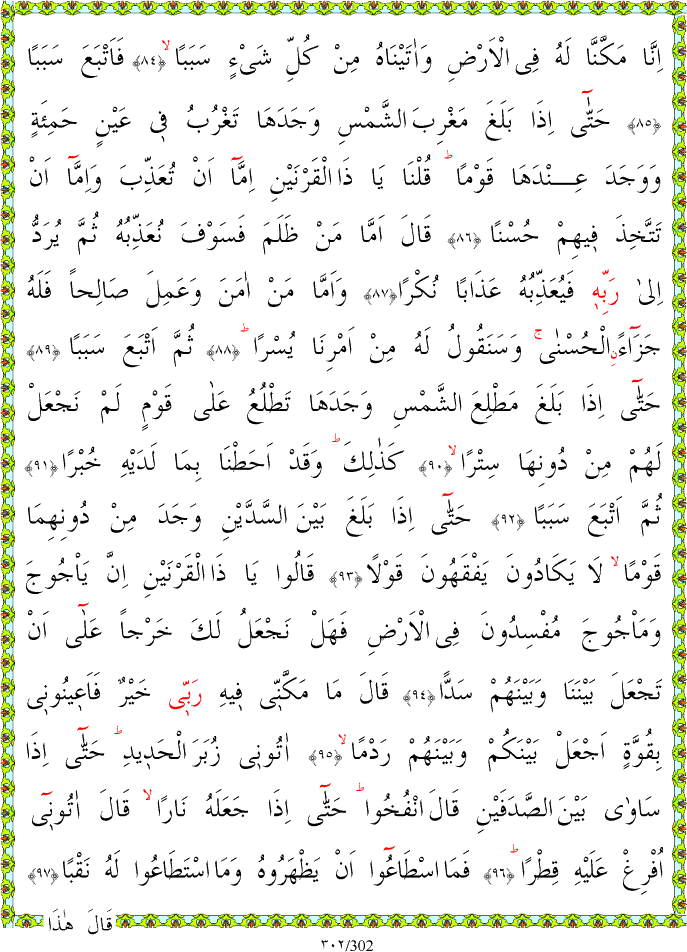 اِنَّا مَكَّنَّا لَهُ فِى الْاَرْضِ وَاٰتَيْنَاهُ مِنْ كُلِّ شَىْءٍ سَبَبًاۙ ﴿٨٤﴾ فَاَتْبَعَ سَبَبًا
﴿٨٥﴾ حَتّٰٓى اِذَا بَلَغَ مَغْرِبَ الشَّمْسِ وَجَدَهَا تَغْرُبُ ف۪ى عَيْنٍ حَمِئَةٍ
وَوَجَدَ عِنْدَهَا قَوْمًاۜ قُلْنَا يَا ذَا الْقَرْنَيْنِ اِمَّٓا اَنْ تُعَذِّبَ وَاِمَّٓا اَنْ
تَتَّخِذَ ف۪يهِمْ حُسْنًا ﴿٨٦﴾ قَالَ اَمَّا مَنْ ظَلَمَ فَسَوْفَ نُعَذِّبُهُ ثُمَّ يُرَدُّ
اِلٰى رَبِّه۪ فَيُعَذِّبُهُ عَذَابًا نُكْرًا ﴿٨٧﴾ وَاَمَّا مَنْ اٰمَنَ وَعَمِلَ صَالِحاً فَلَهُ
جَزَٓاءًۨ الْحُسْنٰىۚ وَسَنَقُولُ لَهُ مِنْ اَمْرِنَا يُسْرًاۜ ﴿٨٨﴾ ثُمَّ اَتْبَعَ سَبَبًا ﴿٨٩﴾
حَتّٰٓى اِذَا بَلَغَ مَطْلِعَ الشَّمْسِ وَجَدَهَا تَطْلُعُ عَلٰى قَوْمٍ لَمْ نَجْعَلْ
لَهُمْ مِنْ دُونِهَا سِتْرًاۙ ﴿٩٠﴾ كَذٰلِكَۜ وَقَدْ اَحَطْنَا بِمَا لَدَيْهِ خُبْرًا ﴿٩١﴾
ثُمَّ اَتْبَعَ سَبَبًا ﴿٩٢﴾ حَتّٰٓى اِذَا بَلَغَ بَيْنَ السَّدَّيْنِ وَجَدَ مِنْ دُونِهِمَا
قَوْمًاۙ لَا يَكَادُونَ يَفْقَهُونَ قَوْلًا ﴿٩٣﴾ قَالُوا يَا ذَا الْقَرْنَيْنِ اِنَّ يَاْجُوجَ
وَمَاْجُوجَ مُفْسِدُونَ فِى الْاَرْضِ فَهَلْ نَجْعَلُ لَكَ خَرْجاً عَلٰٓى اَنْ
تَجْعَلَ بَيْنَنَا وَبَيْنَهُمْ سَدًّا ﴿٩٤﴾ قَالَ مَا مَكَّنّ۪ى ف۪يهِ رَبّ۪ى خَيْرٌ فَاَع۪ينُون۪ى
بِقُوَّةٍ اَجْعَلْ بَيْنَكُمْ وَبَيْنَهُمْ رَدْمًاۙ ﴿٩٥﴾ اٰتُون۪ى زُبَرَ الْحَد۪يدِۜ حَتّٰٓى اِذَا
سَاوٰى بَيْنَ الصَّدَفَيْنِ قَالَ انْفُخُواۜ حَتّٰٓى اِذَا جَعَلَهُ نَارًاۙ قَالَ اٰتُون۪ٓى
اُفْرِغْ عَلَيْهِ قِطْرًاۜ ﴿٩٦﴾ فَمَا اسْطَاعُٓوا اَنْ يَظْهَرُوهُ وَمَا اسْتَطَاعُوا لَهُ نَقْبًا ﴿٩٧﴾
قَالَ هٰذَا
٣٠٢/302